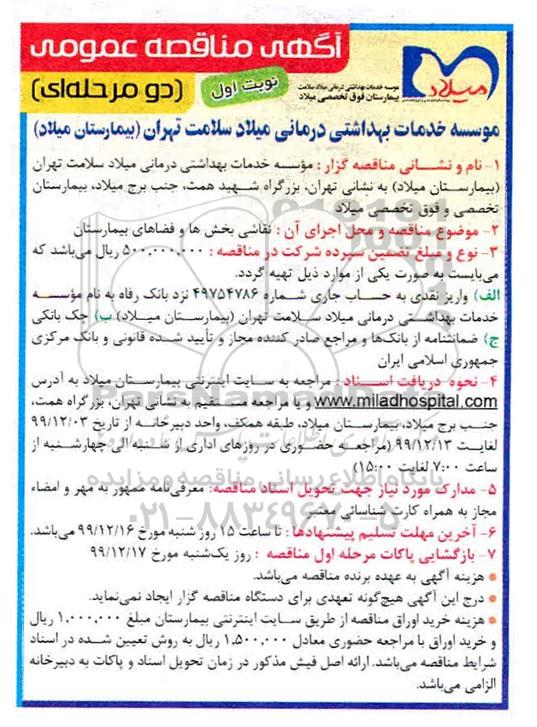 آگهی مناقصه عمومی
(دو مرحله‌ای)
نوبت اول
میلاد
موسسه خدمات بهداشتی درمانی میلاد سلامت
بیمارستان فوق تخصصی میلاد
موسسه خدمات بهداشتی درمانی میلاد سلامت تهران (بیمارستان میلاد)
۱- نام و نشـــانی مناقصه گزار : مؤسسه خدمات بهداشتی درمانی میلاد سلامت تهران
(بیمارستان میلاد) به نشانی تهران، بزرگراه شهید همت، جنب برج میلاد، بیمارستان
تخصصی و فوق تخصصی میلاد
۲- موضوع مناقصه و محل اجرای آن : نقاشی بخش ها و فضاهای بیمارستان
۳- نوع و مبلغ تضمین سپرده شرکت در مناقصه : ۵۰۰,۰۰۰,۰۰۰ ریال می‌باشد که
می‌بایست به صورت یکی از موارد ذیل تهیه گردد.
الف) واریز نقدی به حساب جاری شماره ۴۹۷۵۴۷۸۶ نزد بانک رفاه به نام مؤسسه
خدمات بهداشتی درمانی میلاد سلامت تهران (بیمارستان میلاد) ب) چک بانکی
ج) ضمانتنامه از بانک‌ها و مراجع صادر کننده مجاز و تأیید شده قانونی و بانک مرکزی
جمهوری اسلامی ایران
۴- نحوه دریافت اسناد : مراجعه به سایت اینترنتی بیمارستان میلاد به آدرس
www.miladhospital.com و یا مراجعه مستقیم به نشانی تهران، بزرگراه همت،
جنب برج میلاد، بیمارستان میلاد، طبقه همکف، واحد دبیرخانه از تاریخ ۹۹/۱۲/۰۳
لغایت ۹۹/۱۲/۱۳ (مراجعه حضوری در روزهای اداری از شنبه الی چهارشنبه از
ساعت ۷:۰۰ لغایت ۱۵:۰۰)
۵- مدارک مورد نیاز جهت تحویل اسناد مناقصه: معرفی‌نامه ممهور به مهر و امضاء
مجاز به همراه کارت شناسائی معتبر
۶- آخرین مهلت تسلیم پیشنهادها : تا ساعت ۱۵ روز شنبه مورخ ۹۹/۱۲/۱۶ می‌باشد.
۷- بازگشایی پاکات مرحله اول مناقصه : روز یک‌شنبه مورخ ۹۹/۱۲/۱۷
● هزینه آگهی به عهده برنده مناقصه می‌باشد.
● درج این آگهی هیچ‌گونه تعهدی برای دستگاه مناقصه گزار ایجاد نمی‌نماید.
● هزینه خرید اوراق مناقصه از طریق سایت اینترنتی بیمارستان مبلغ ۱,۰۰۰,۰۰۰ ریال
و خرید اوراق با مراجعه حضوری معادل ۱,۵۰۰,۰۰۰ ریال به روش تعیین شده در اسناد
شرایط مناقصه می‌باشد. ارائه اصل فیش مذکور در زمان تحویل اسناد و پاکات به دبیرخانه
الزامی می‌باشد.
پایگاه اطلاع رسانی مناقصه و مزایده
۰۲۱-۸۸۳۴۹۶۷۰-۵